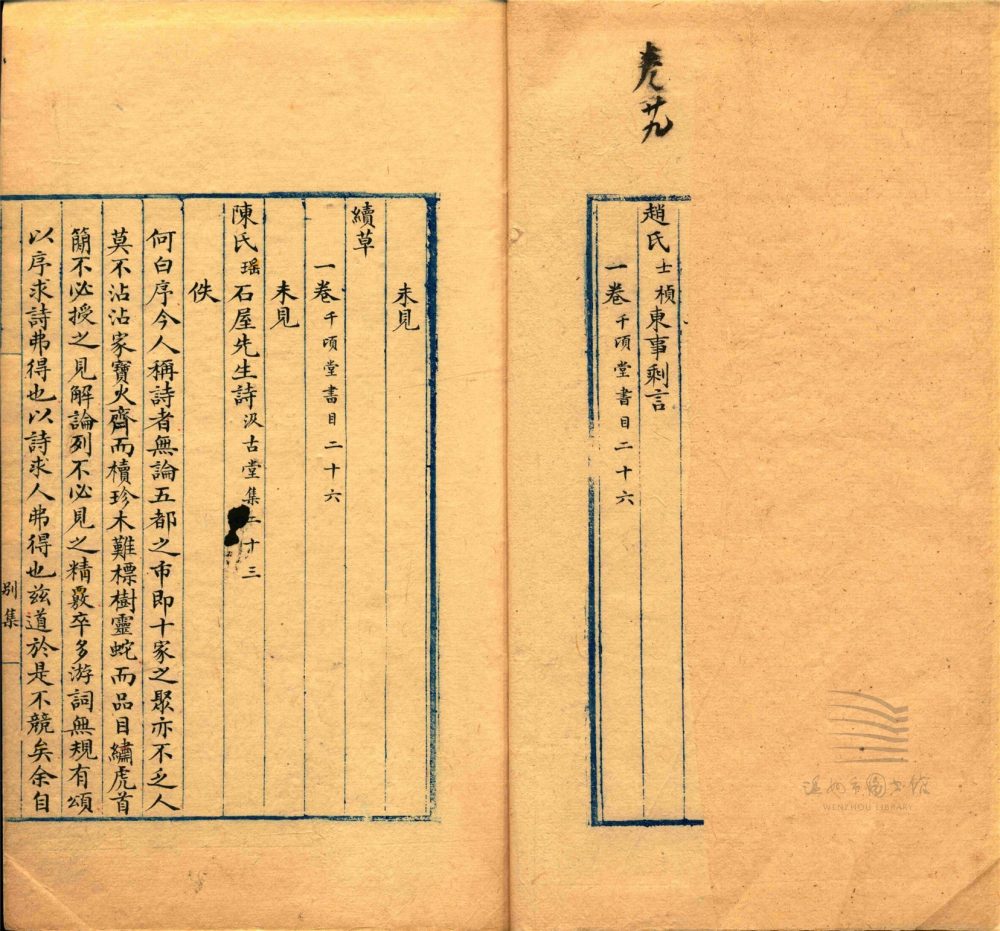 卷廿九
趙氏士楨東事剩言
一卷千頃堂書目二十六
未見
續草
一卷千頃堂書目二十六
未見
陳氏瑶石屋先生詩汲古堂集二十三
佚
何白序今人稱詩者無論五都之市即十家之聚亦不乏人
莫不沾沾家寶火齊而櫝珍木難標樹靈蛇而品目繡虎首
簡不必授之見解論列不必見之精覈卒多游詞無規有頌
以序求詩弗得也以詩求人弗得也茲道於是不競矣余自
別集
溫州市圖書館
WENZHOU LIBRARY